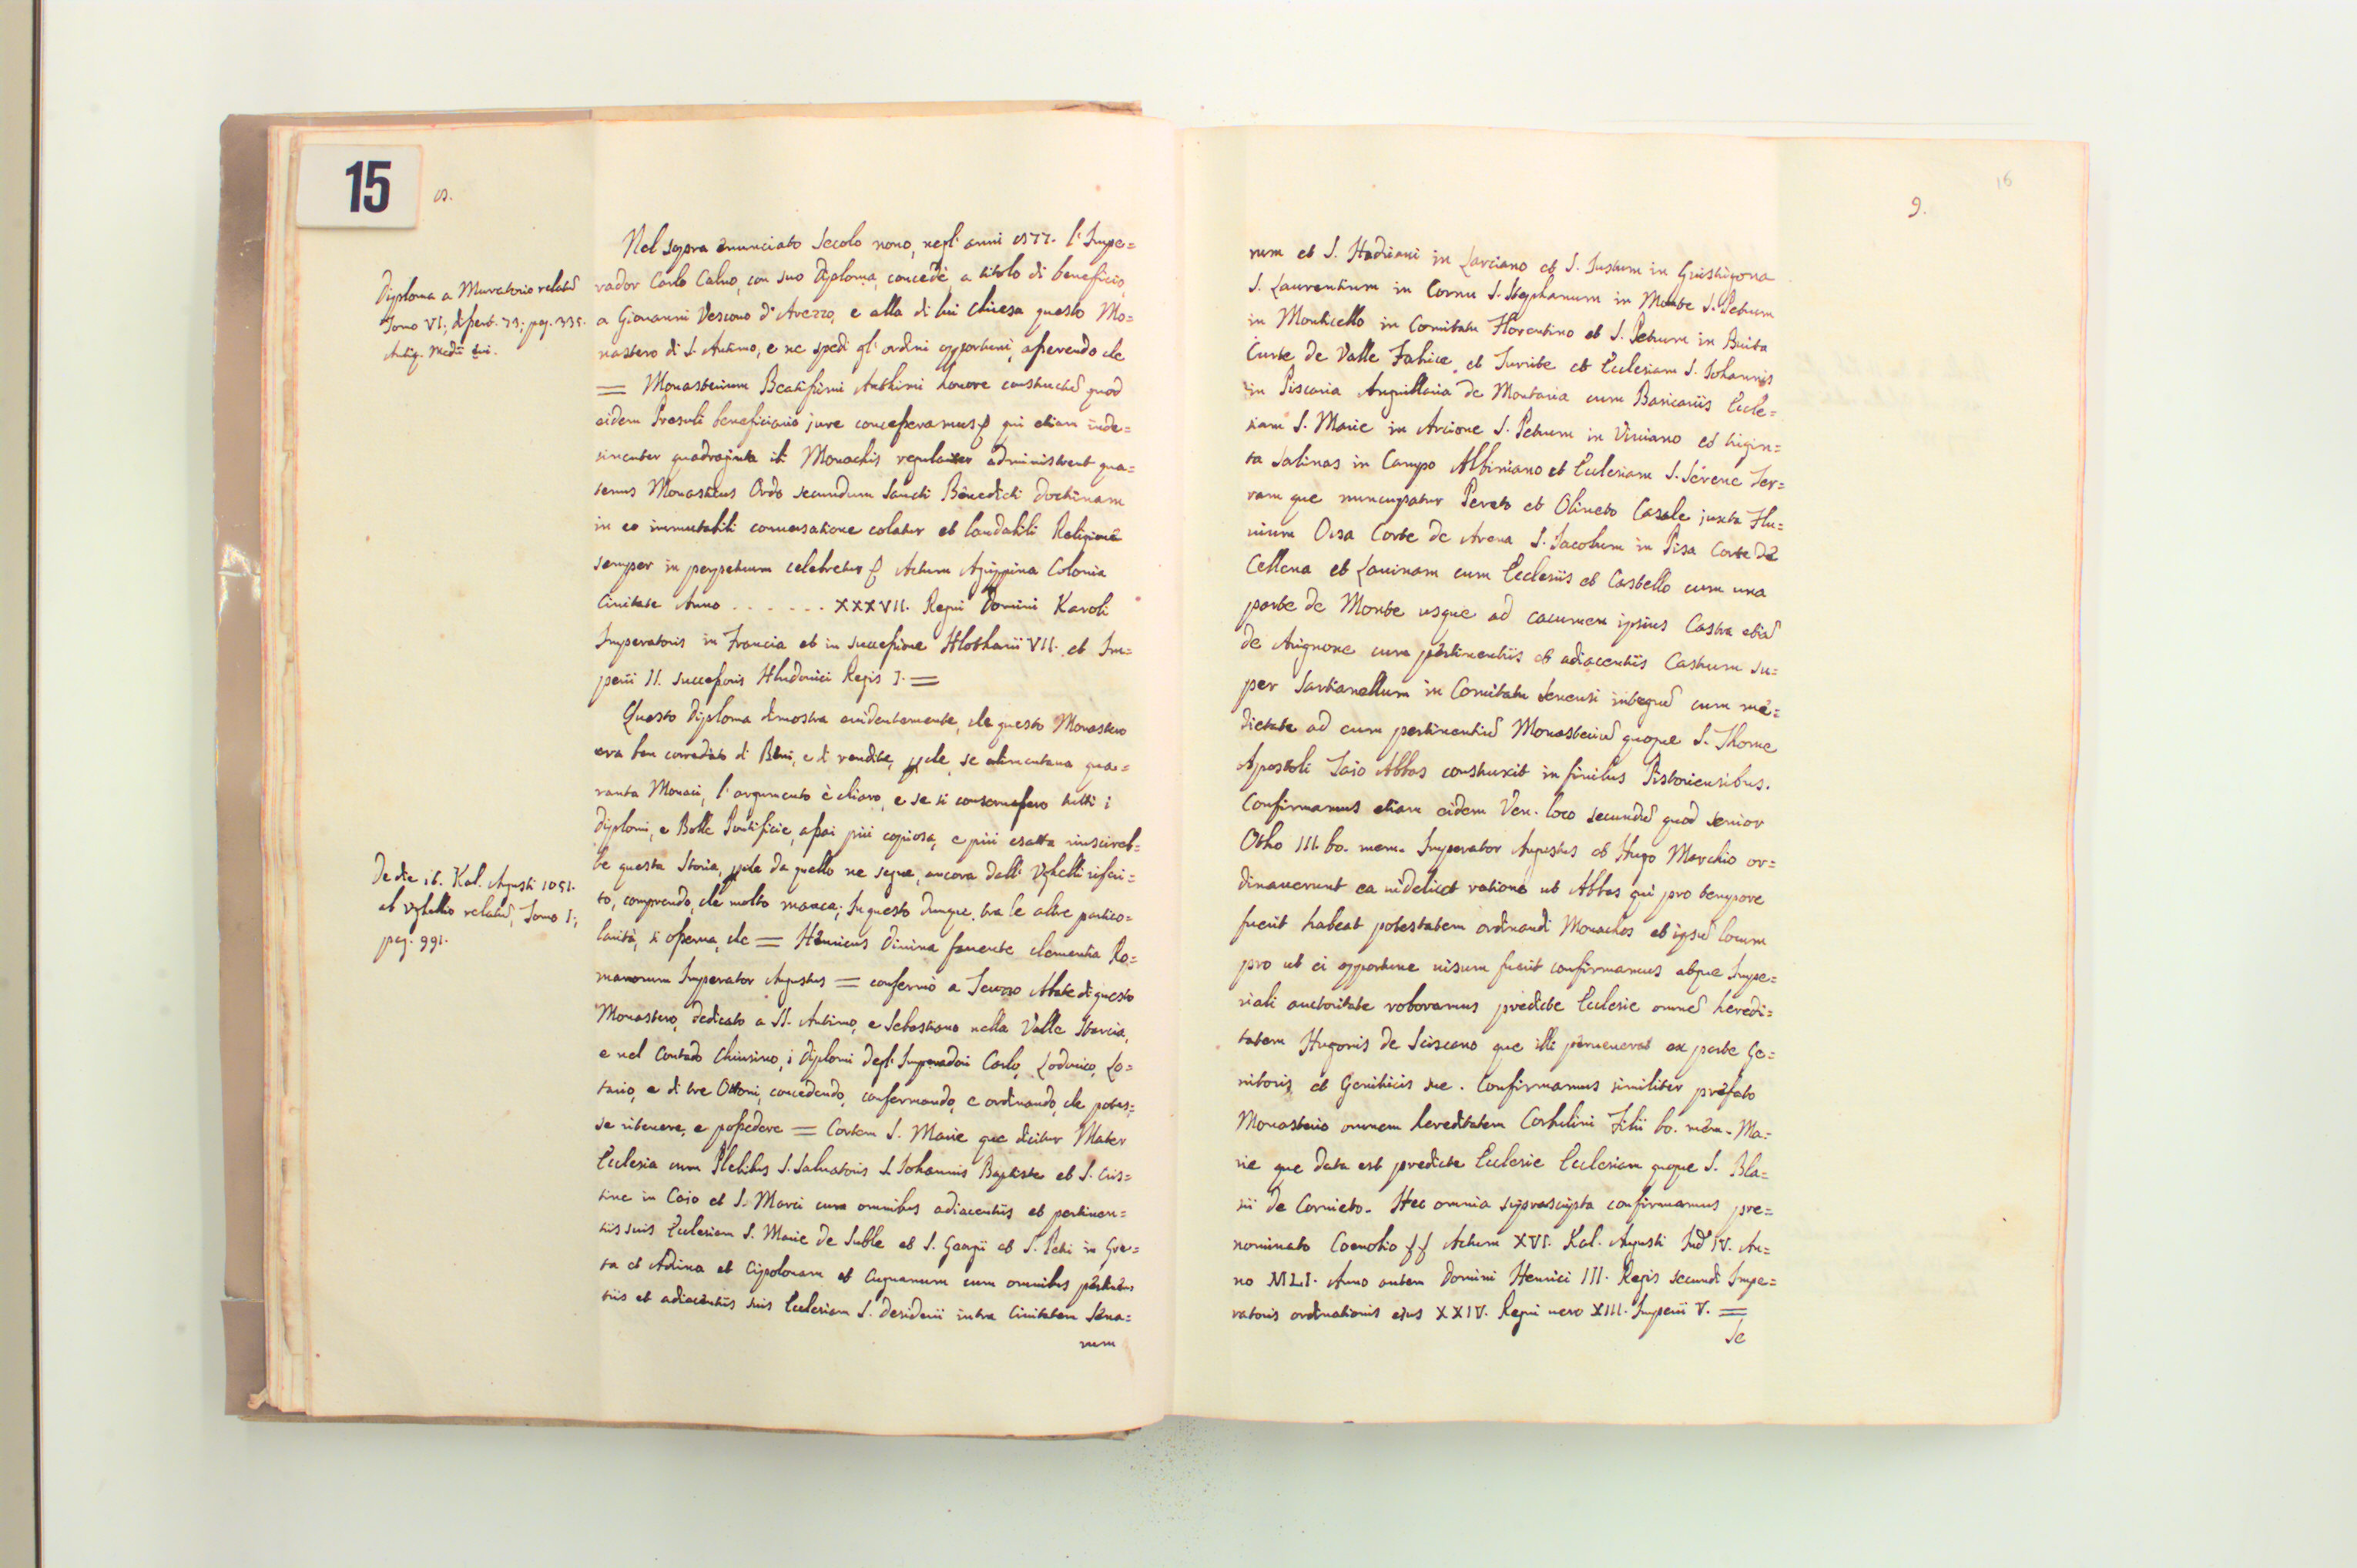 15
8.
Nel sopra enunciato Secolo nono, negl' anni 877. l'Impe=
rador Carlo Calvo, con suo Diploma, concedè a titolo di beneficio,
a Giovanni Vescovo d'Arezzo, e alla di lui Chiesa questo Mo=
nastero di S. Antimo, e ne spedì gl' ordini opportuni, asserendo che
= Monasterium Beatissimi Anthimi honore constructū quod
eidem Presuli beneficiario jure concesseramus qui etiam inde=
sinenter quadraginta ibi Monachis regulariter administrent qua=
tenus Monasticus Ordo secundum Sancti Benedicti doctrinam
in eo immutabili conversatione colatur et laudabili Religione
semper in perpetuum celebretur Actum Agrippina Colonia
Civitate Anno . . . . . . XXXVII. Regni Domini Karoli
Imperatoris in Francia et in successione Hlotharii VII. et Im=
perii II. successoris Hludovici Regis I. =
Questo Diploma dimostra evidentemente, che questo Monastero
era ben corredato di Beni, e di rendite, che se alimentava qua=
ranta Monaci, l'argumento è chiaro, e se si conservassero tutti i
Diplomi, e Bolle Pontificie, assai più copiosa, e più esatta riuscireb=
be questa Storia, da quello ne segue, ancora dall' Ughelli riferi=
to, comprendo, che molto manca; In questo dunque, tra le altre partico=
larità, si osserva, che = Henricus divina favente clementia Ro=
manorum Imperator Augustus = confermò a Teuzzo Abate di questo
Monastero, dedicato a SS. Antimo, e Sebastiano nella Valle Starcia,
e nel Contado Chiusino, i Diplomi degl' Imperadori Carlo, Lodovico, Lo=
tario, e di tre Ottoni, concedendo, confermando, e ordinando, che potes=
se ritenere, e possedere = Cortem S. Marie que dicitur Mater
Ecclesia cum Plebibus S. Salvatoris S. Johannis Baptiste et S. Cris=
tine in Caio et S. Marci cum omnibus adiacentiis et pertinen=
tiis suis Ecclesiam S. Marie de Suble et S. Georgii et S. Petri in Gre=
ta et Adina et Cipolonam et Cugnanum cum omnibus pertinen
tiis et adiacentiis suis Ecclesiam S. Desiderii intra Civitatem Sena=
rum
Diploma a Muratorio relatū
Tomo VI; dissert. 73; pag. 335.
Antiq. Medii Evi.
De die 16. Kal. Augusti 1051.
ab Ughellio relatū, Tomo I;
pag. 991.
16
9.
rum et S. Hadriani in Larciano et S. Justum in Guistrigona
S. Laurentium in Cornu S. Stephanum in Monte S. Petrum
in Monticello in Comitatu Florentino et S. Petrum in Buita
Curte de Valle Fabice et Turrite et Ecclesiam S. Johannis
in Piscaria Anguillaria de Montaria cum Baricariis Eccle=
siam S. Marie in Arcione S. Petrum in Viviano et trigin=
ta Salinas in Campo Albiniano et Ecclesiam S. Serene Ter=
ram que nuncupatur Pereto et Oliveto Casale juxta Flu=
vium Orsa Corte de Arena S. Jacobum in Pisa Corte de
Cellena et Lavinam cum Ecclesiis et Castello cum una
parte de Monte usque ad cacumen ipsius Castra etiā
de Avignone cum pertinentiis et adiacentiis Castrum su=
per Sartianellum in Comitatu Senensi integrū cum me=
dietate ad eum pertinentiū Monasteriū quoque S. Thome
Apostoli Taio Abbas construxit in finibus Pistoriensibus.
Confirmamus etiam eidem Ven. loco secundū quod senior
Otho III. bo. mem. Imperator Augustus et Hugo Marchio or=
dinaverunt ea videlicet ratione ut Abbas qui pro tempore
fuerit habeat potestatem ordinandi Monachos et ipsū locum
pro ut ei opportune visum fuerit confirmamus atque Impe=
riali auctoritate roboramus predicte Ecclesie omnē heredi=
tatem Hugonis de Sciscano que illi pervenerat ex parte Ge=
nitoris et Genitricis sue. Confirmamus similiter prefato
Monasterio omnem hereditatem Corbulini Filii bo. mem. Ma=
rie que data est predicte Ecclesie Ecclesiam quoque S. Bla=
sii de Corneto. Hec omnia suprascripta confirmamus pre=
nominato Coenobio Actum XVI. Kal. Augusti Ind IV. An=
no MLI. Anno autem Domini Henrici III. Regis secundi Impe=
ratoris ordinationis ejus XXIV. Regni vero XIII. Imperii V. =
Se